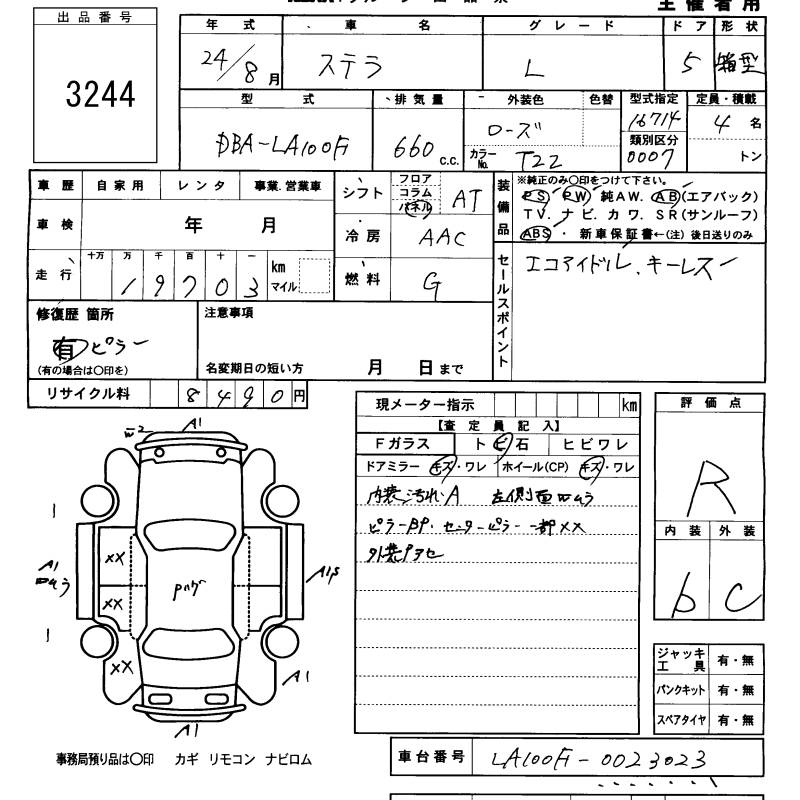 主催者用
出品番号
3244
年式 車名 グレード ドア 形状
24/8月 ステラ L 5 箱型
型式 排気量 外装色 色替 型式指定 定員・積載
DBA-LA100F 660 c.c. ローズ 16714 4名
カラーNo. T22 類別区分 0007 トン
車歴 自家用 レンタ 事業.営業車
車検 年 月
走行 十万 万 千 百 十 一 km マイル
19703
シフト フロア コラム パネル AT
冷房 AAC
燃料 G
装備品 ※純正のみ○印をつけて下さい。
PS PW 純AW. AB(エアバック)
TV. ナビ. カワ. SR(サンルーフ)
ABS ・ 新車保証書←(注)後日送りのみ
セールスポイント
エコアイドル、キーレス
修復歴 箇所
有 ピラー
(有の場合は○印を)
注意事項
名変期日の短い方 月 日まで
リサイクル料 8490円
現メーター指示 km
【査定員記入】
Fガラス トビ石 ヒビワレ
ドアミラー キズ・ワレ ホイール(CP) キズ・ワレ
内装汚れA 左側面ムラ
ピラーBP. センターピラー一部××
外装
評価点
R
内装 外装
b C
ジャッキ工具 有・無
パンクキット 有・無
スペアタイヤ 有・無
A1
A1
××
××
××
A1
A1
事務局預り品は○印 カギ リモコン ナビロム
車台番号 LA100F-0023023